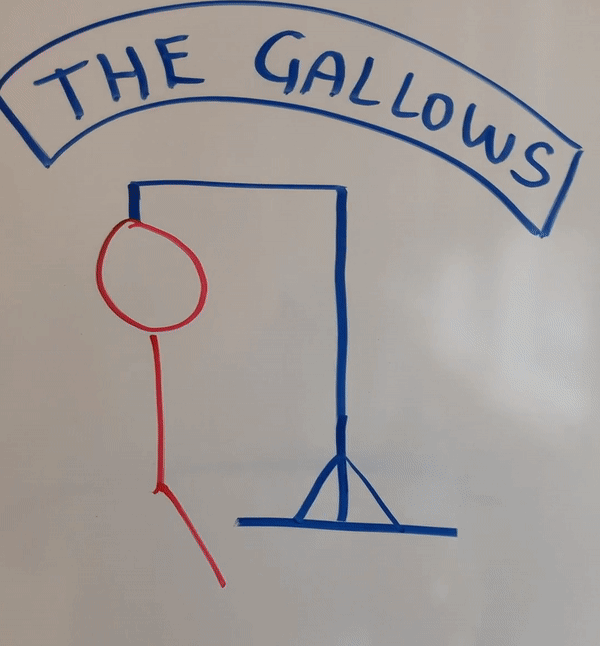 THE GALLOWS